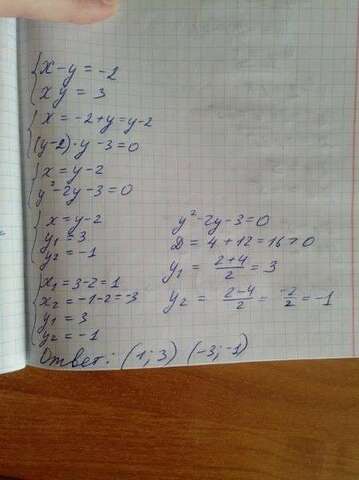 x-y=-2
xy=3
x=-2+y=y-2
(y-2)·y-3=0
x=y-2
y²-2y-3=0
x=y-2
y₁=3
y₂=-1
y²-2y-3=0
D=4+12=16>0
y₁=\frac{2+4}{2}=3
y₂=\frac{2-4}{2}=\frac{-2}{2}=-1
x₁=3-2=1
x₂=-1-2=-3
y₁=3
y₂=-1
Ответ: (1;3) (-3;-1)